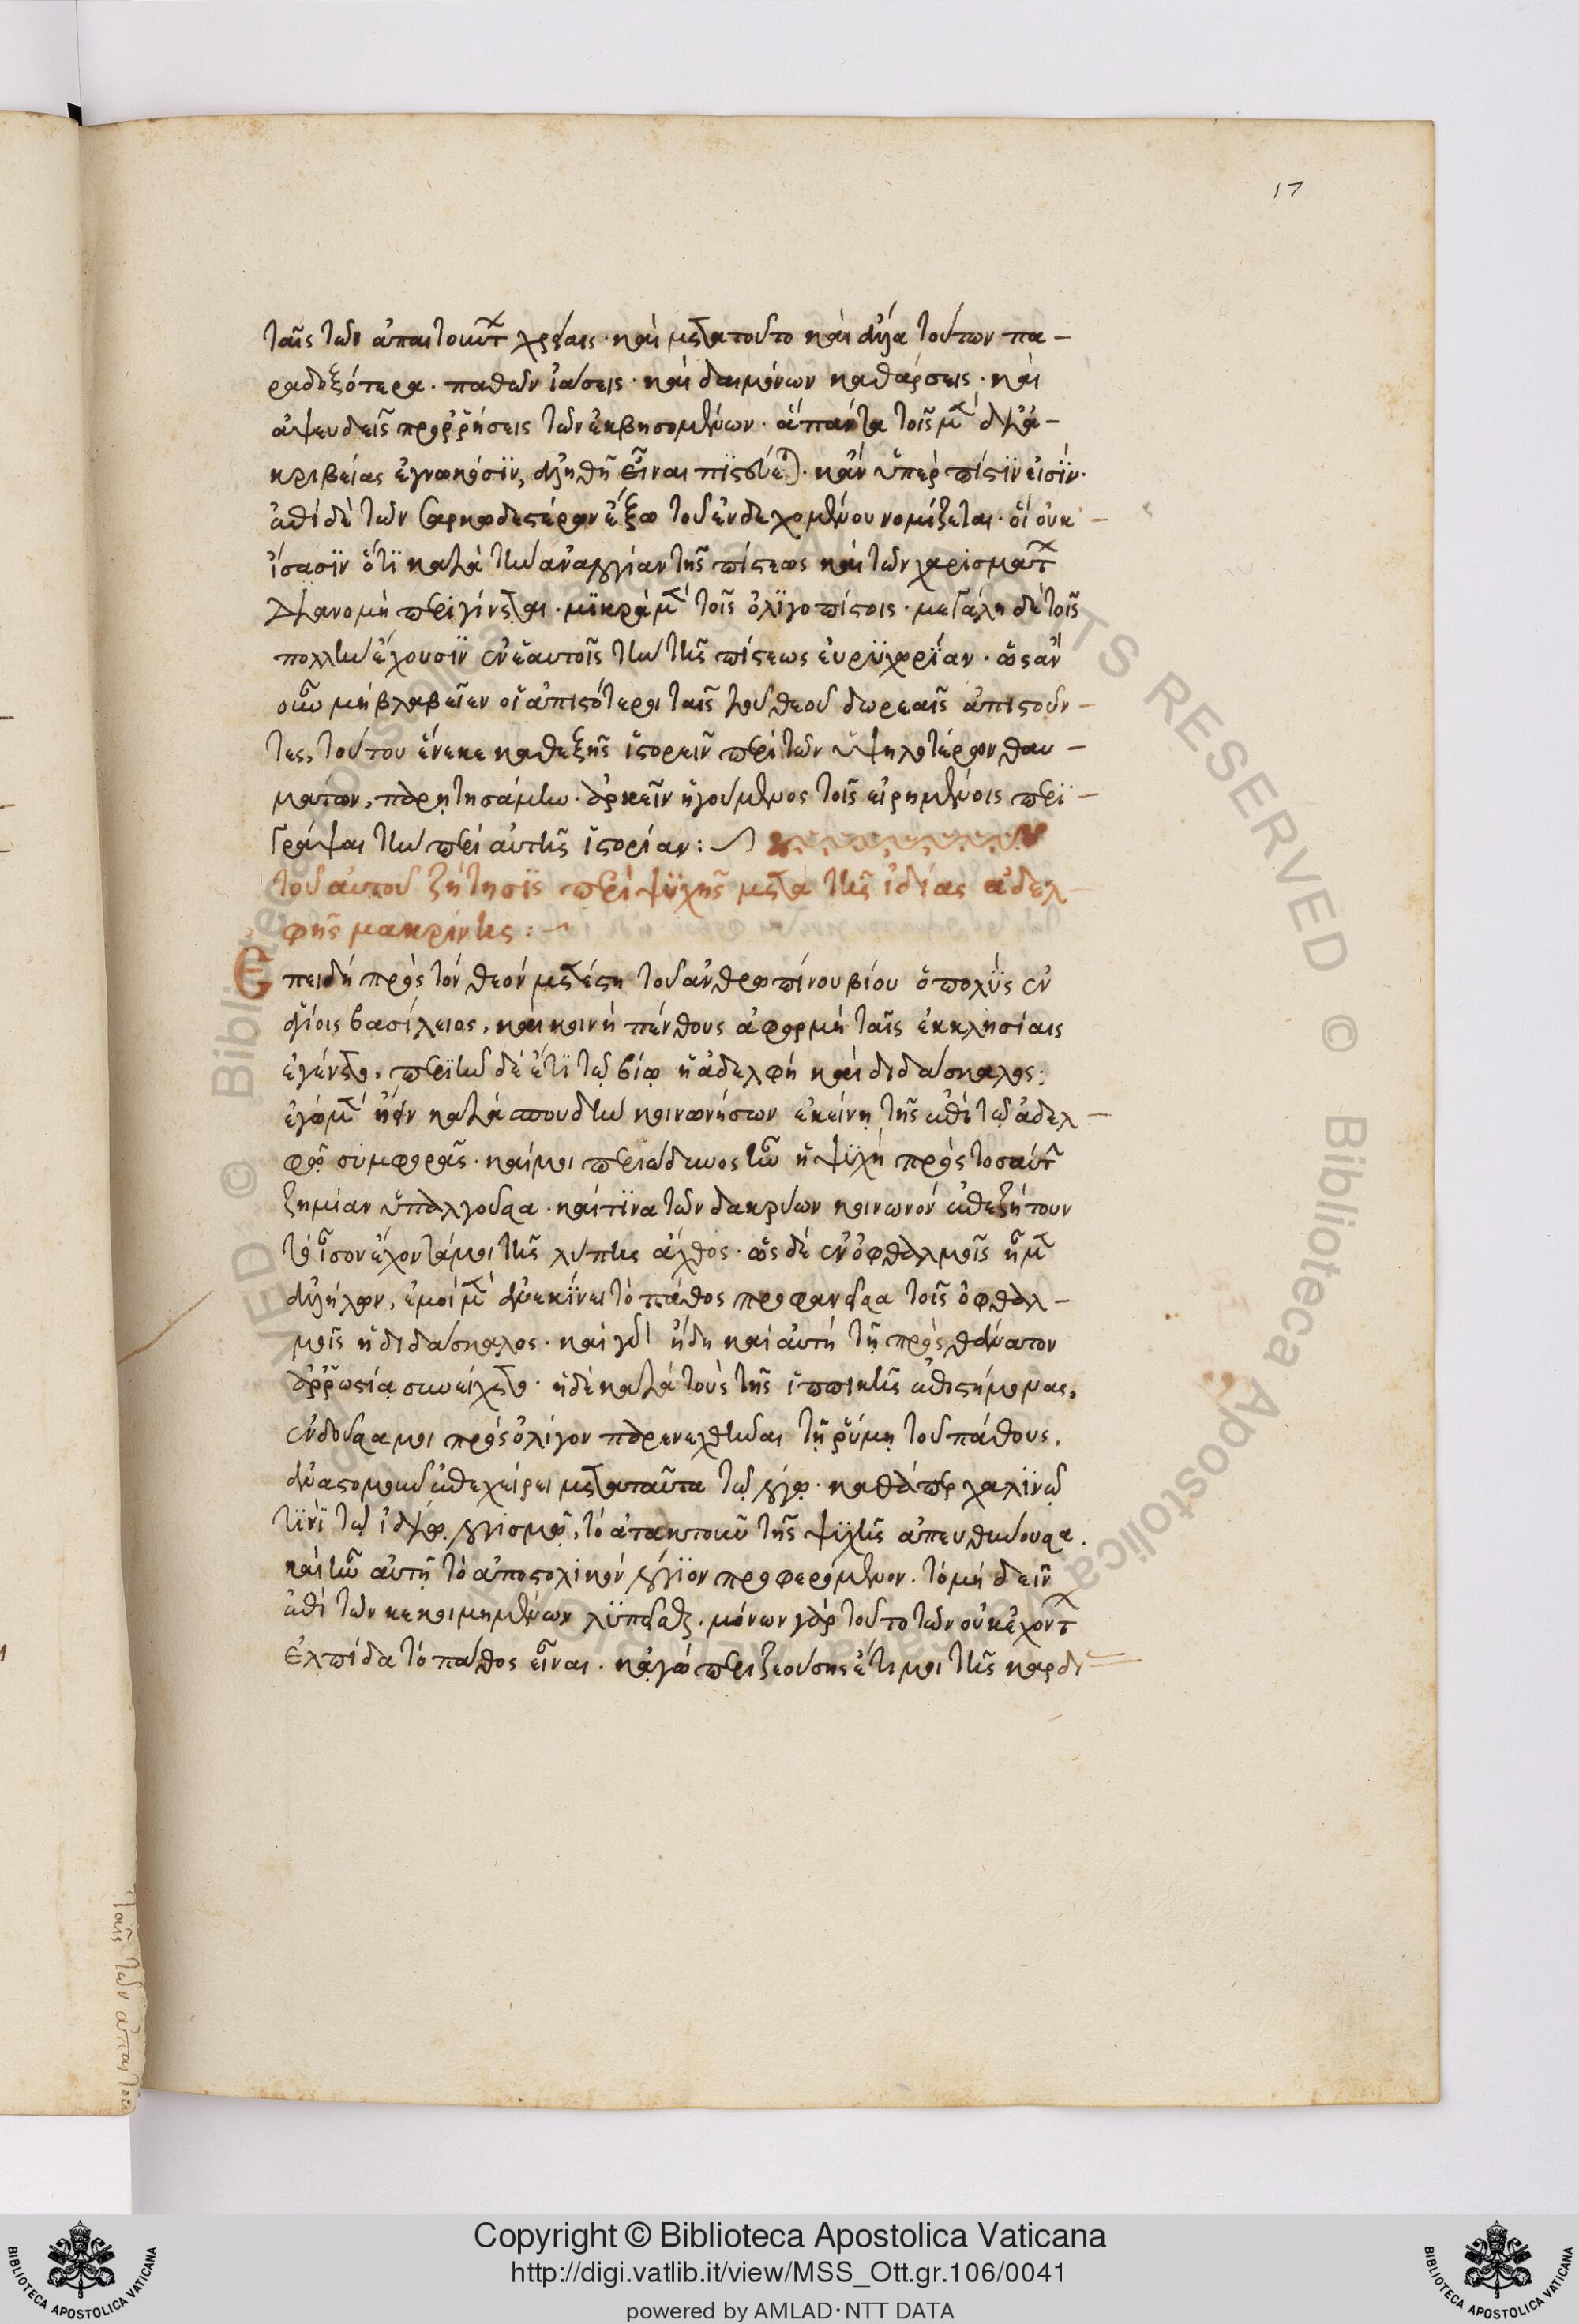 17
ταῖς τῶν ἀπαιτούντων χρείαις · καὶ μετὰ τοῦτο καὶ ἄλλα τούτων πα–
ραδοξότερα · παθῶν ἰάσεις · καὶ δαιμόνων καθάρσεις · καὶ
ἀψευδεῖς προῤῥήσεις τῶν ἐκβησομένων · ἃ πάντα τοῖς μὲν δι' ἀ–
κριβείας ἐγνωκόσϊν, ἀληθῆ εἶναι πϊστεύεται · κἂν ὑπὲρ πίστϊν εἰσϊν ·
ἐπὶ δὲ τῶν σαρκωδεστέρων ἔξω τοῦ ἐνδεχομένου νομίζεται · οἳ οὐκ –
ἴσασϊν ὅτϊ κατὰ τὴν ἀναλογίαν τῆς πίστεως καὶ τῶν χαρισμάτων
διανομὴ περιγίνεται · μϊκρὰ μὲν τοῖς ὀλϊγοπίστοις · μεγάλη δὲ τοῖς
πολλὴν ἔχουσϊν ἐν ἑαυτοῖς τὴν τῆς πίστεως εὐρϋχωρίαν · ὡς ἂν
οὖν μὴ βλαβεῖεν οἱ ἀπιστότεροι ταῖς τοῦ θεοῦ δωρεαῖς ἀπιστοῦν–
τες, τούτου ἕνεκε καθεξῆς ἱστορεῖν περὶ τῶν ὑψηλοτέρων θαυ–
μάτων, παρῃτησάμην · ἀρκεῖν ἡγούμενος τοῖς εἰρημένοις περϊ–
γράψαι τὴν περὶ αὐτῆς ἱστορίαν : ~
τοῦ αὐτοῦ ζήτησϊς περὶ ψϋχῆς μετὰ τῆς ἰδίας ἀδελ–
φῆς μακρίνης : ~
Ἐπειδὴ πρὸς τὸν θεὸν μετέστη τοῦ ἀνθρωπίνου βίου ὁ πολὺς ἐν
ἁγίοις βασίλειος, καὶ κοινὴ πένθους ἀφορμὴ ταῖς ἐκκλησίαις
ἐγένετο, περιῆν δὲ ἔτϊ τῷ βίῳ ἡ ἀδελφὴ καὶ διδάσκαλος ·
ἐγὼ μὲν ᾔειν κατὰ σπουδὴν κοινωνήσων ἐκείνῃ τῆς ἐπὶ τῷ ἀδελ–
φῷ συμφορᾶς · καί μοι περιώδυνος ἦν ἡ ψϋχὴ πρὸς τοσαύτην
ζημίαν ὑπεραλγοῦσα · καὶ τϊνα τῶν δακρύων κοινωνὸν ἐπεζήτουν
τὸ ἶσον ἔχοντά μοι τῆς λύπης ἄχθος · ὡς δὲ ἐν ὀφθαλμοῖς ἦμεν
ἀλλήλων, ἐμοὶ μὲν ἀνεκίνει τὸ πάθος προφανεῖσα τοῖς ὀφθαλ–
μοῖς ἡ διδάσκαλος · καὶ γὰρ ἤδη καὶ αὐτὴ τῇ πρὸς θάνατον
ἀῤῥωστίᾳ συνείχετο · ἡ δὲ κατὰ τοὺς τῆς ἱππικῆς ἐπιστήμονας,
ἐνδοῦσά μοι πρὸς ὀλίγον παρενεχθῆναι τῇ ῥύμῃ τοῦ πάθους,
ἀναστομοῦν ἐπεχείρει μετὰ ταῦτα τῷ λόγῳ · καθάπερ χαλϊνῷ
τϊνϊ τῷ ἰδίῳ λογισμῷ, τὸ ἀτακτοῦν τῆς ψϋχῆς ἀπευθύνουσα.
καὶ ἦν αὐτῇ τὸ ἀποστολικὸν λόγϊον προφερόμενον. τὸ μὴ δεῖν
ἐπὶ τῶν κεκοιμημένων λϋπεῖσθαι · μόνων γὰρ τοῦτο τῶν οὐκ ἐχόντων
ἐλπίδα τὸ πάθος εἶναι · κᾀγὼ περιζεούσης ἔτι μοι τῆς καρδί
ταῖς τῶν ἀπαιτού
Copyright © Biblioteca Apostolica Vaticana
http://digi.vatlib.it/view/MSS_Ott.gr.106/0041
powered by AMLAD·NTT DATA
BIBLIOTECA APOSTOLICA VATICANA
BIBLIOTECA APOSTOLICA VATICANA